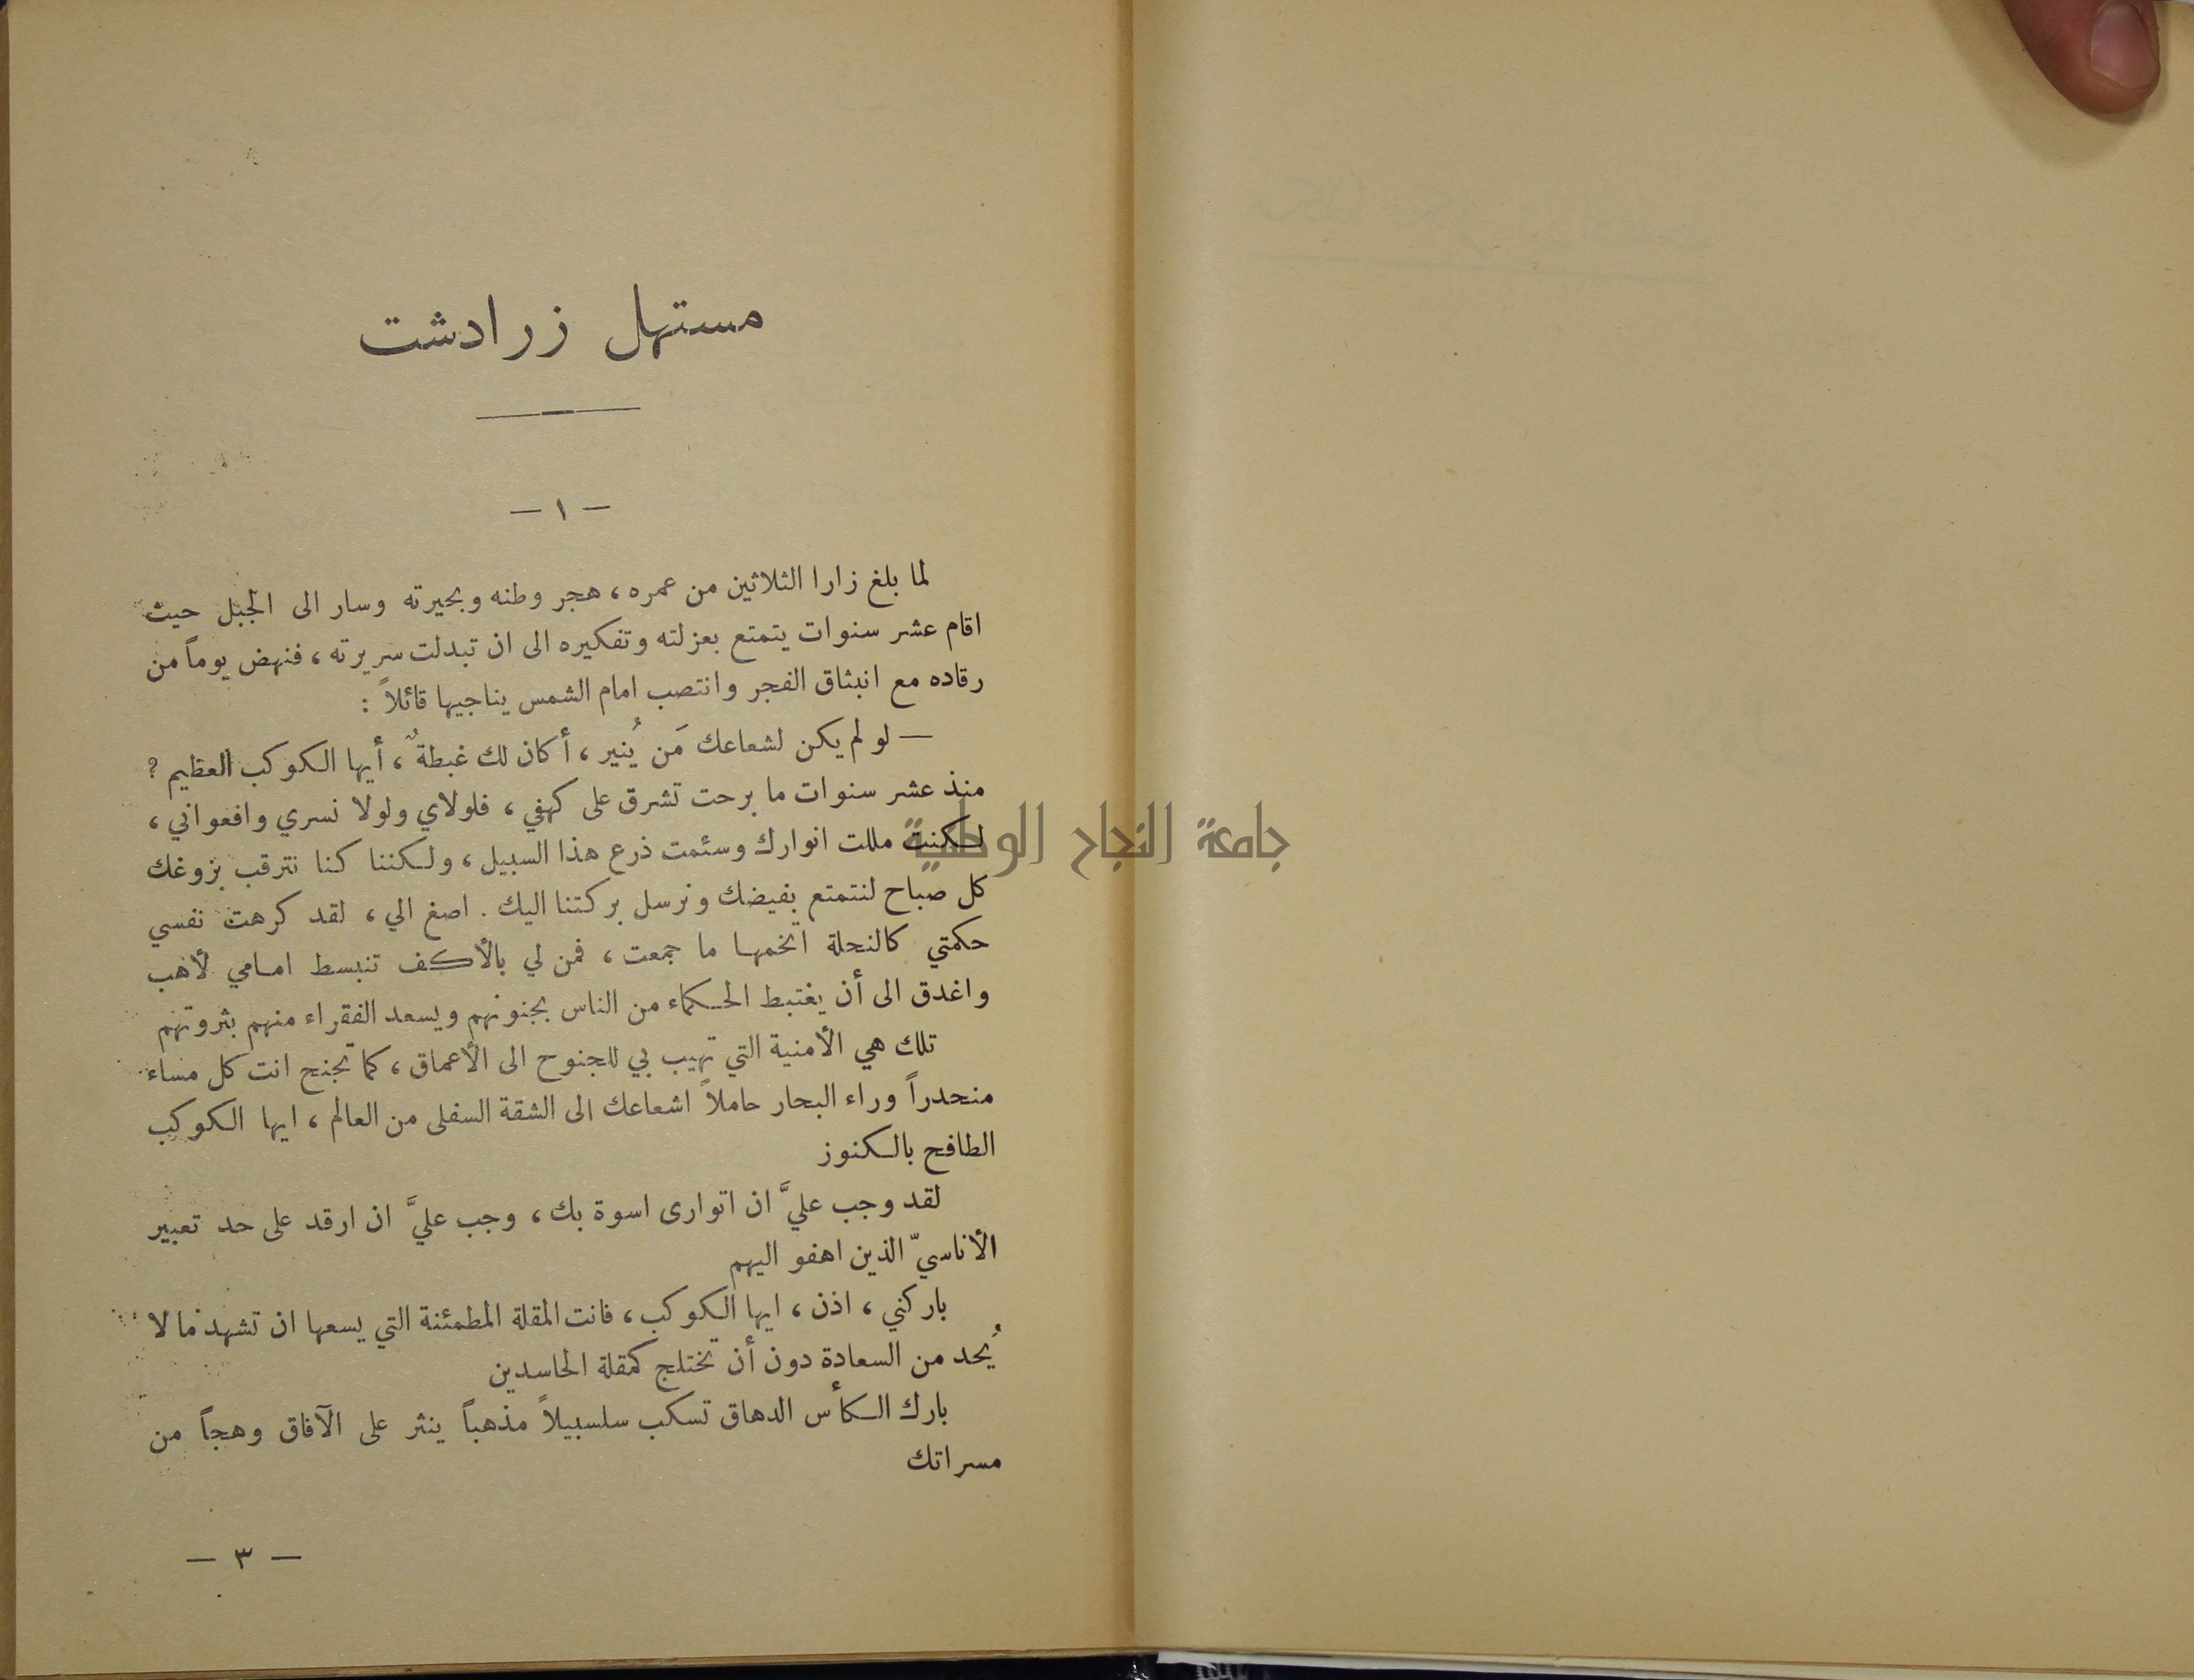 مستهل زرادشت
— ١ —
لما بلغ زارا الثلاثين من عمره، هجر وطنه وبحيرته وسار الى الجبل حيث
اقام عشر سنوات يتمتع بعزلته وتفكيره الى ان تبدلت سريرته، فنهض يوماً من
رقاده مع انبثاق الفجر وانتصب امام الشمس يناجيها قائلاً :
— لو لم يكن لشعاعك مَن يُنير، أكان لك غبطةٌ، أيها الكوكب العظيم ?
منذ عشر سنوات ما برحت تشرق على كهفي، فلولاي ولولا نسري وافعواني،
لكنت مللت انوارك وسئمت ذرع هذا السبيل، ولكننا كنا نترقب بزوغك
كل صباح لنتمتع بفيضك ونرسل بركتنا اليك . اصغ الي، لقد كرهت نفسي
حكمتي كالنحلة اتخمها ما جمعت، فمن لي بالأكف تنبسط امامي لأهب
واغدق الى أن يغتبط الحكماء من الناس بجنونهم ويسعد الفقراء منهم بثروتهم
تلك هي الأمنية التي تهيب بي للجنوح الى الأعماق، كما تجنح انت كل مساء
منحدراً وراء البحار حاملاً اشعاعك الى الشقة السفلى من العالم، ايها الكوكب
الطافح بالكنوز
لقد وجب عليَّ ان اتوارى اسوة بك، وجب عليَّ ان ارقد على حد تعبير
الأناسيّ الذين اهفو اليهم
باركني، اذن، ايها الكوكب، فانت المقلة المطمئنة التي يسعها ان تشهد ما لا
يُحد من السعادة دون أن تختلج كمقلة الحاسدين
بارك الكأس الدهاق تسكب سلسبيلاً مذهباً ينثر على الآفاق وهجاً من
مسراتك
— ٣ —
جامعة النجاح الوطنية